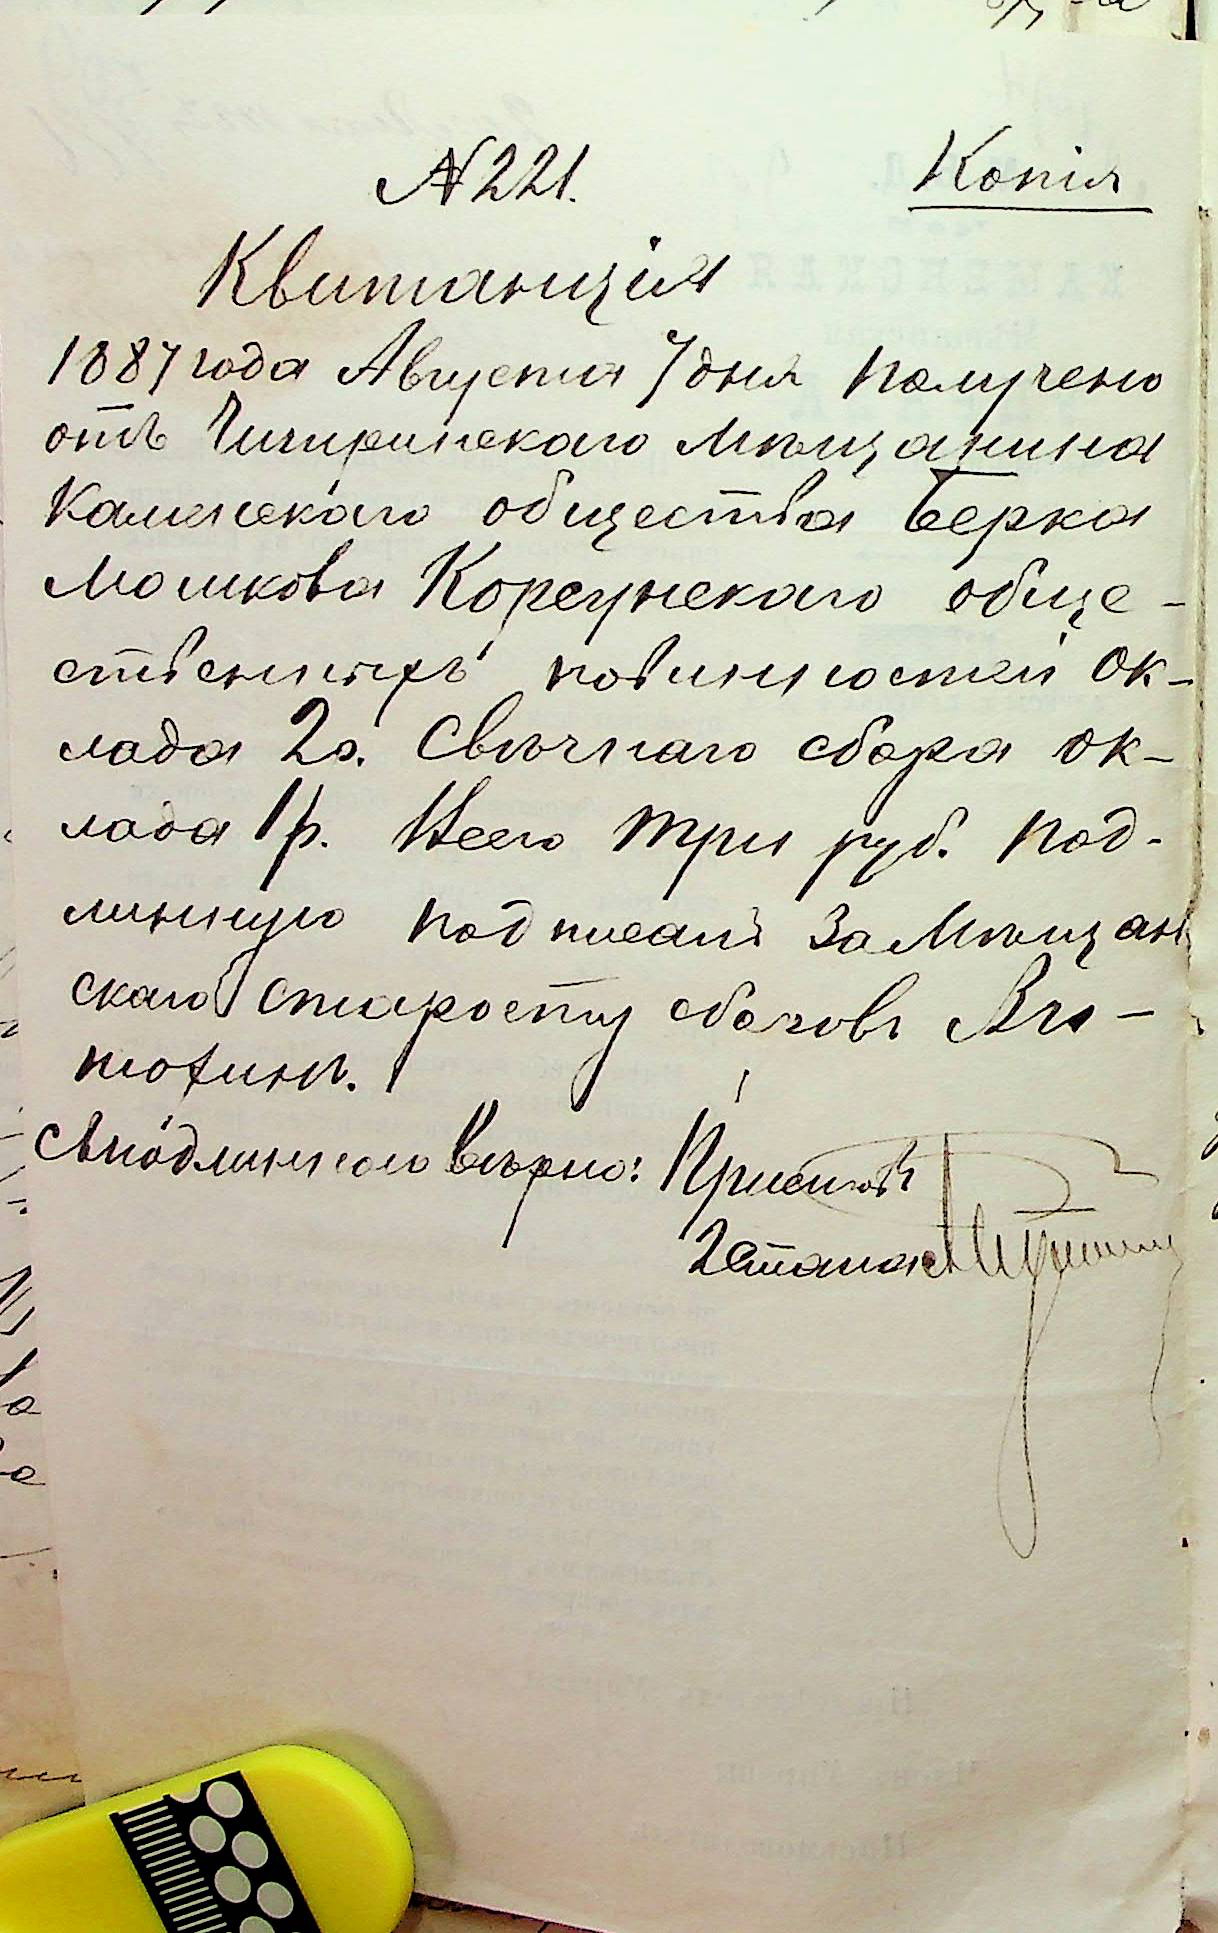 № 221.
Копія
Квитанція
1887 года Августа 7 дня получено
отъ Чигиринскаго мѣщанина
Каменскаго общества Берка
Мошкова Корсунскаго обще-
ственныхъ повинностей ок-
лада 2 р. Свѣчнаго сбора ок-
лада 1 р. Всего три руб. Под-
линную подписалъ За Мѣщан
скаго Старосту
тохинъ.
Съ подлинною вѣрно: Приставъ
2 Стана